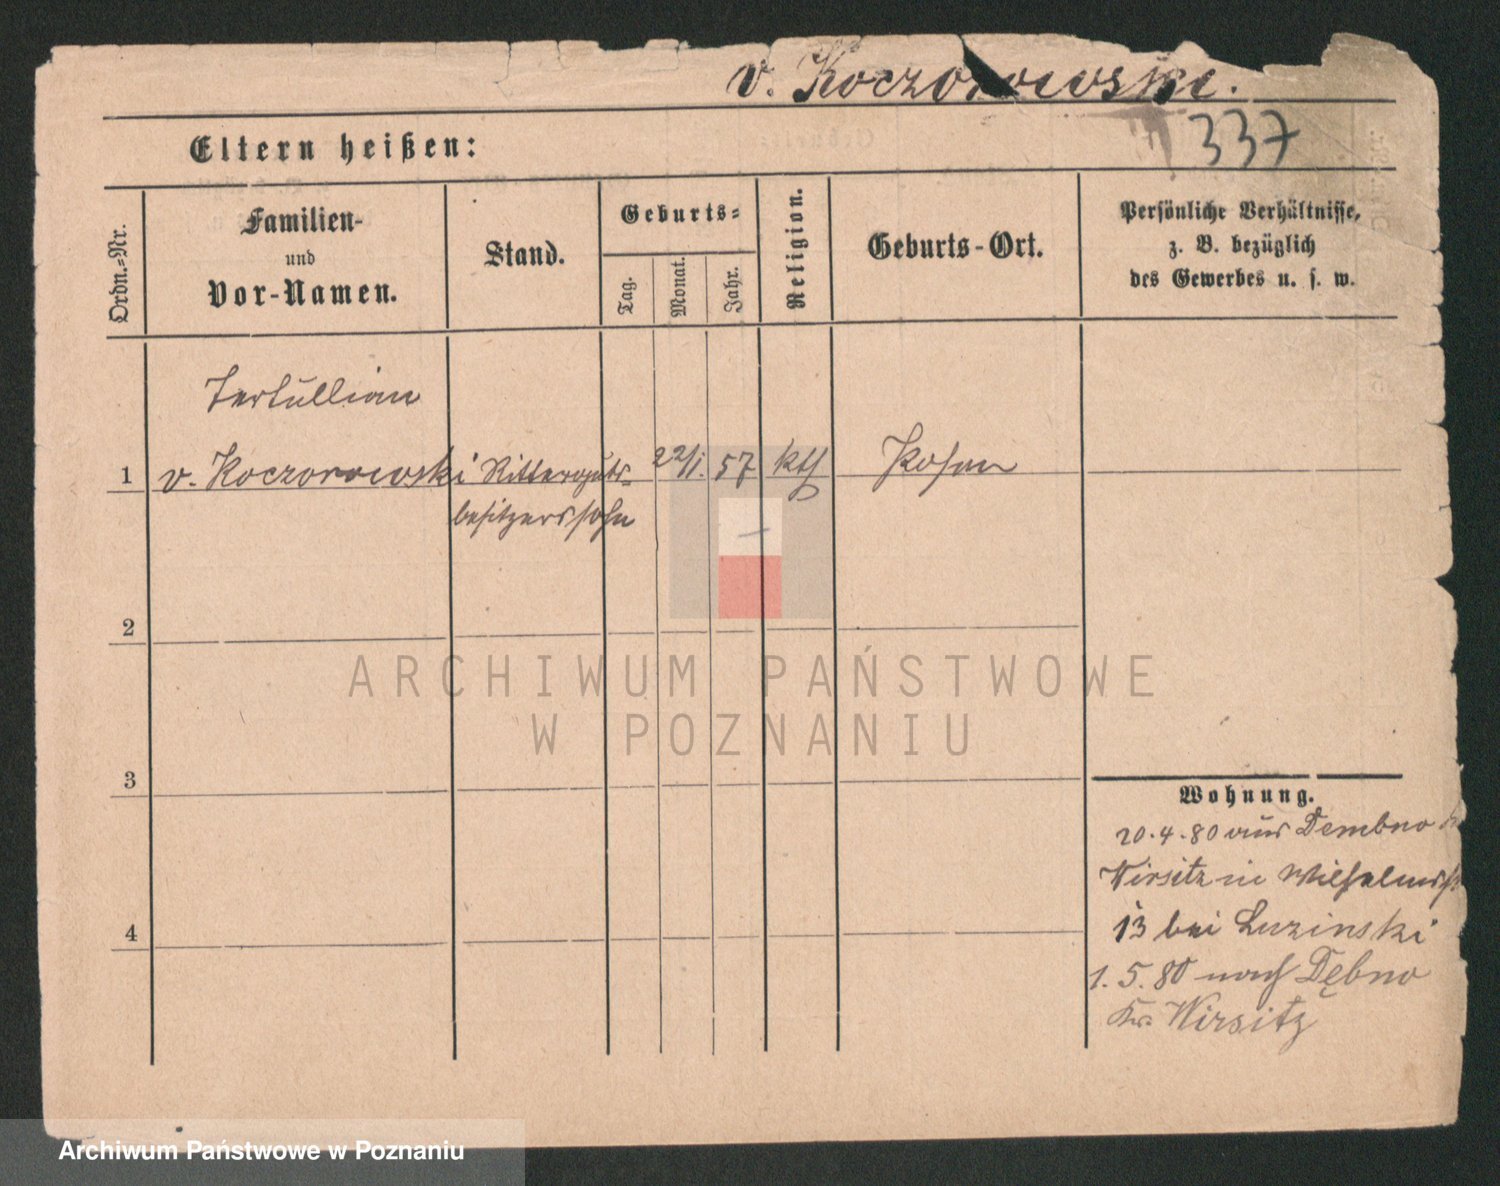 v. Koczorowski.
337
Eltern heißen:
Ordn.-Nr.
Familien-
und
Vor-Namen.
Stand.
Geburts-
Tag.
Monat.
Jahr.
Religion.
Geburts-Ort.
Persönliche Verhältnisse,
z. B. bezüglich
des Gewerbes u. s. w.
Tertullian
1 v. Koczorowski Ritterguts- 22/1. 57 kth
besitzerssohn
2
3
4
Wohnung.
20.4.80 aus Dembno
Wirsitz in
13 bei Luzinski
1.5.80 nach Dębno
Kr. Wirsitz
ARCHIWUM PAŃSTWOWE
W POZNANIU
Archiwum Państwowe w Poznaniu